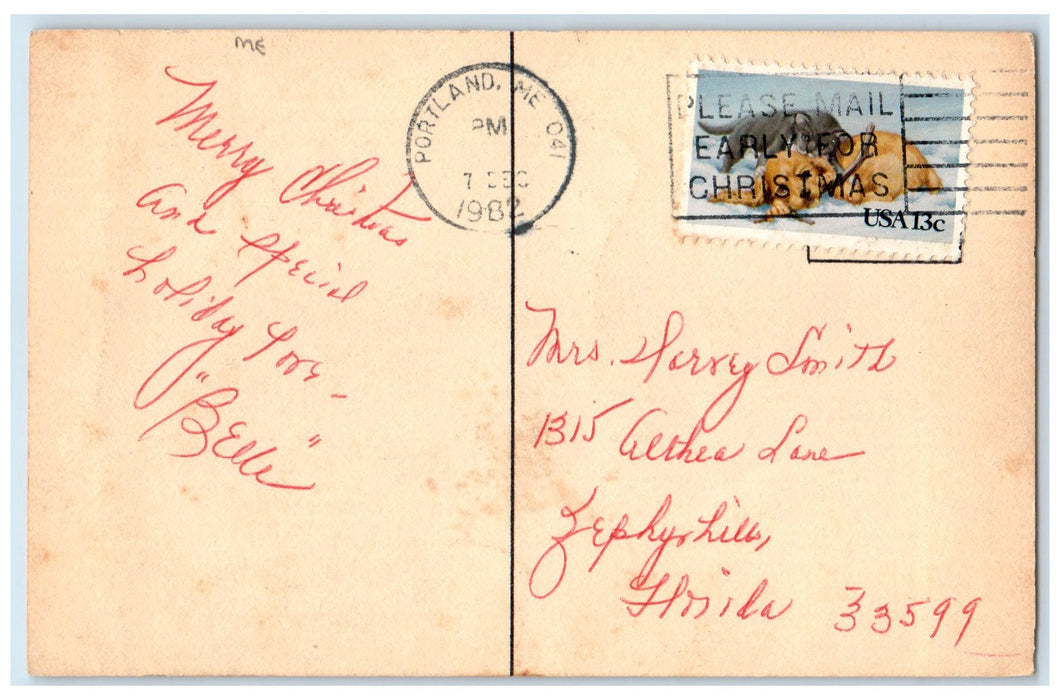 ME
Merry Christmas
and special
holiday love-
"Belle"
PORTLAND, ME 041
PM
7 DEC
1982
PLEASE MAIL
EARLY FOR
CHRISTMAS
USA 13c
Mrs. Harvey Smith
1315 Althea Lane
Zephyrhills,
Florida 33599